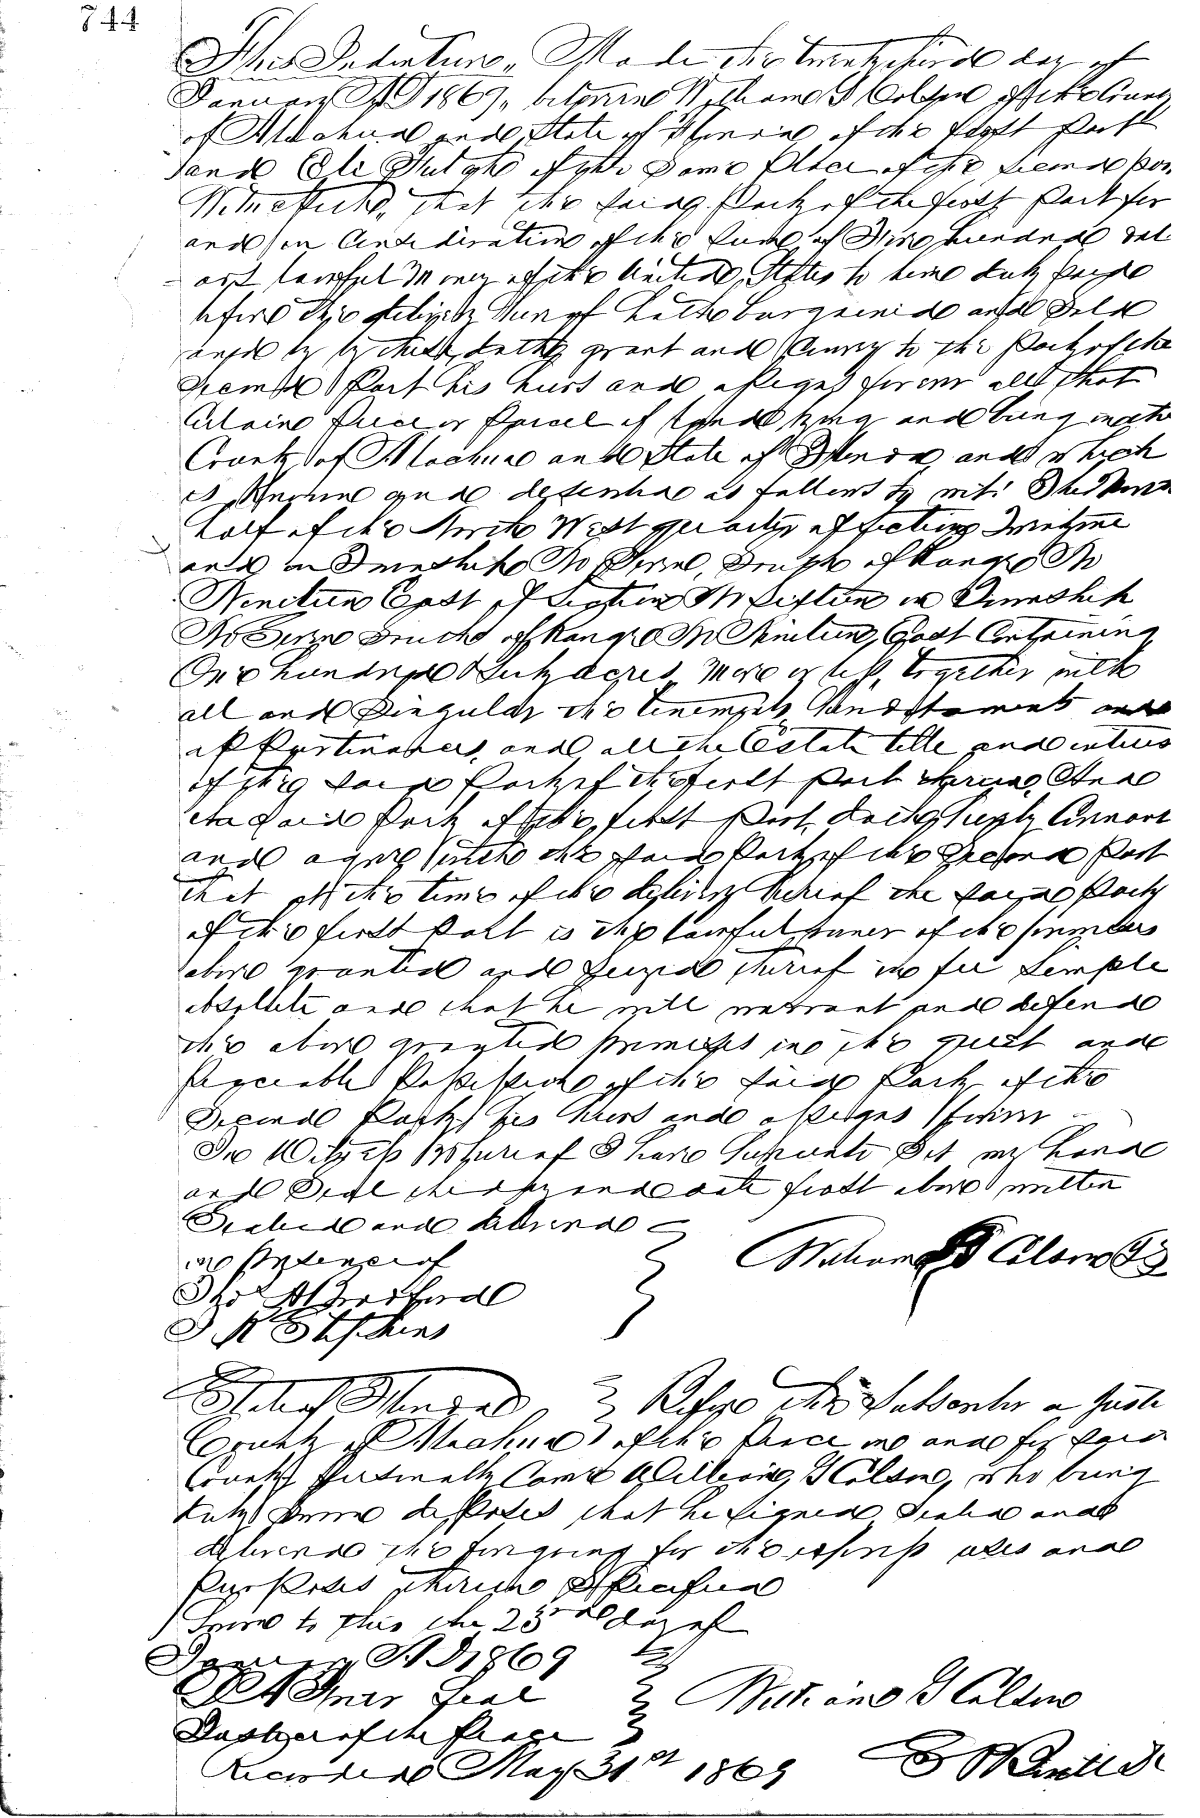 744
This Indenture, Made this twenty third day of
January AD 1869, between William G Colson of the County
of Alachua and State of Florida of the first Part
and Eli of the same Place of the Second par
Witnesseth, that the said Party of the first Part for
and in Consideration of the sum of hundred dol
ars lawful Money of the United States to him duly paid
before the delivery hereof hath bargained and Sold
and by these doth grant and Convey to the Party of the
Second Part his heirs and assigns forever all that
Certain Piece or Parcel of land lying and being in the
County of Alachua and State of Florida and which
is Known and described as follows to wit: The
half of the North West quarter of section
and in Township No Seven South of Range No
Nineteen East of Section No Sixteen in Township
No Seven South of Range No Nineteen East Containing
One hundred Sixty acres More or less, together with
all and Singular the tenements and
appurtinances, and all the Estate title and interes
of the said Party of the first Part therein, And
the said Party of the first Part, doth hereby Covenant
and agree with the said Party of the Second Part
that at the time of the delivery hereof the said Party
of the first Part is the lawful owner of the premises
above granted and Seized thereof in fee Simple
absolute and that he will warrant and defend
the above granted premises in the quiet and
Peaceable Possession of the said Party of the
Second Party his heirs and assigns forever
In Witness Whereof I have hereunto Set my hand
and Seal the day and date first above written
Sealed and delivered
in presence of
William G Colson LS
Stephens
State of Florida Before the Subscriber a Justi
County of Alachua of the Peace in and for said
County Personally Came William G Colson, who being
duly Sworn deposes that he signed Sealed and
delivered the foregoing for the express uses and
Purposes therein Specified
Sworn to this the 23rd day of
January AD 1869
Seal William G Colson
Justice of the Peace
Recorded May 31st 1869